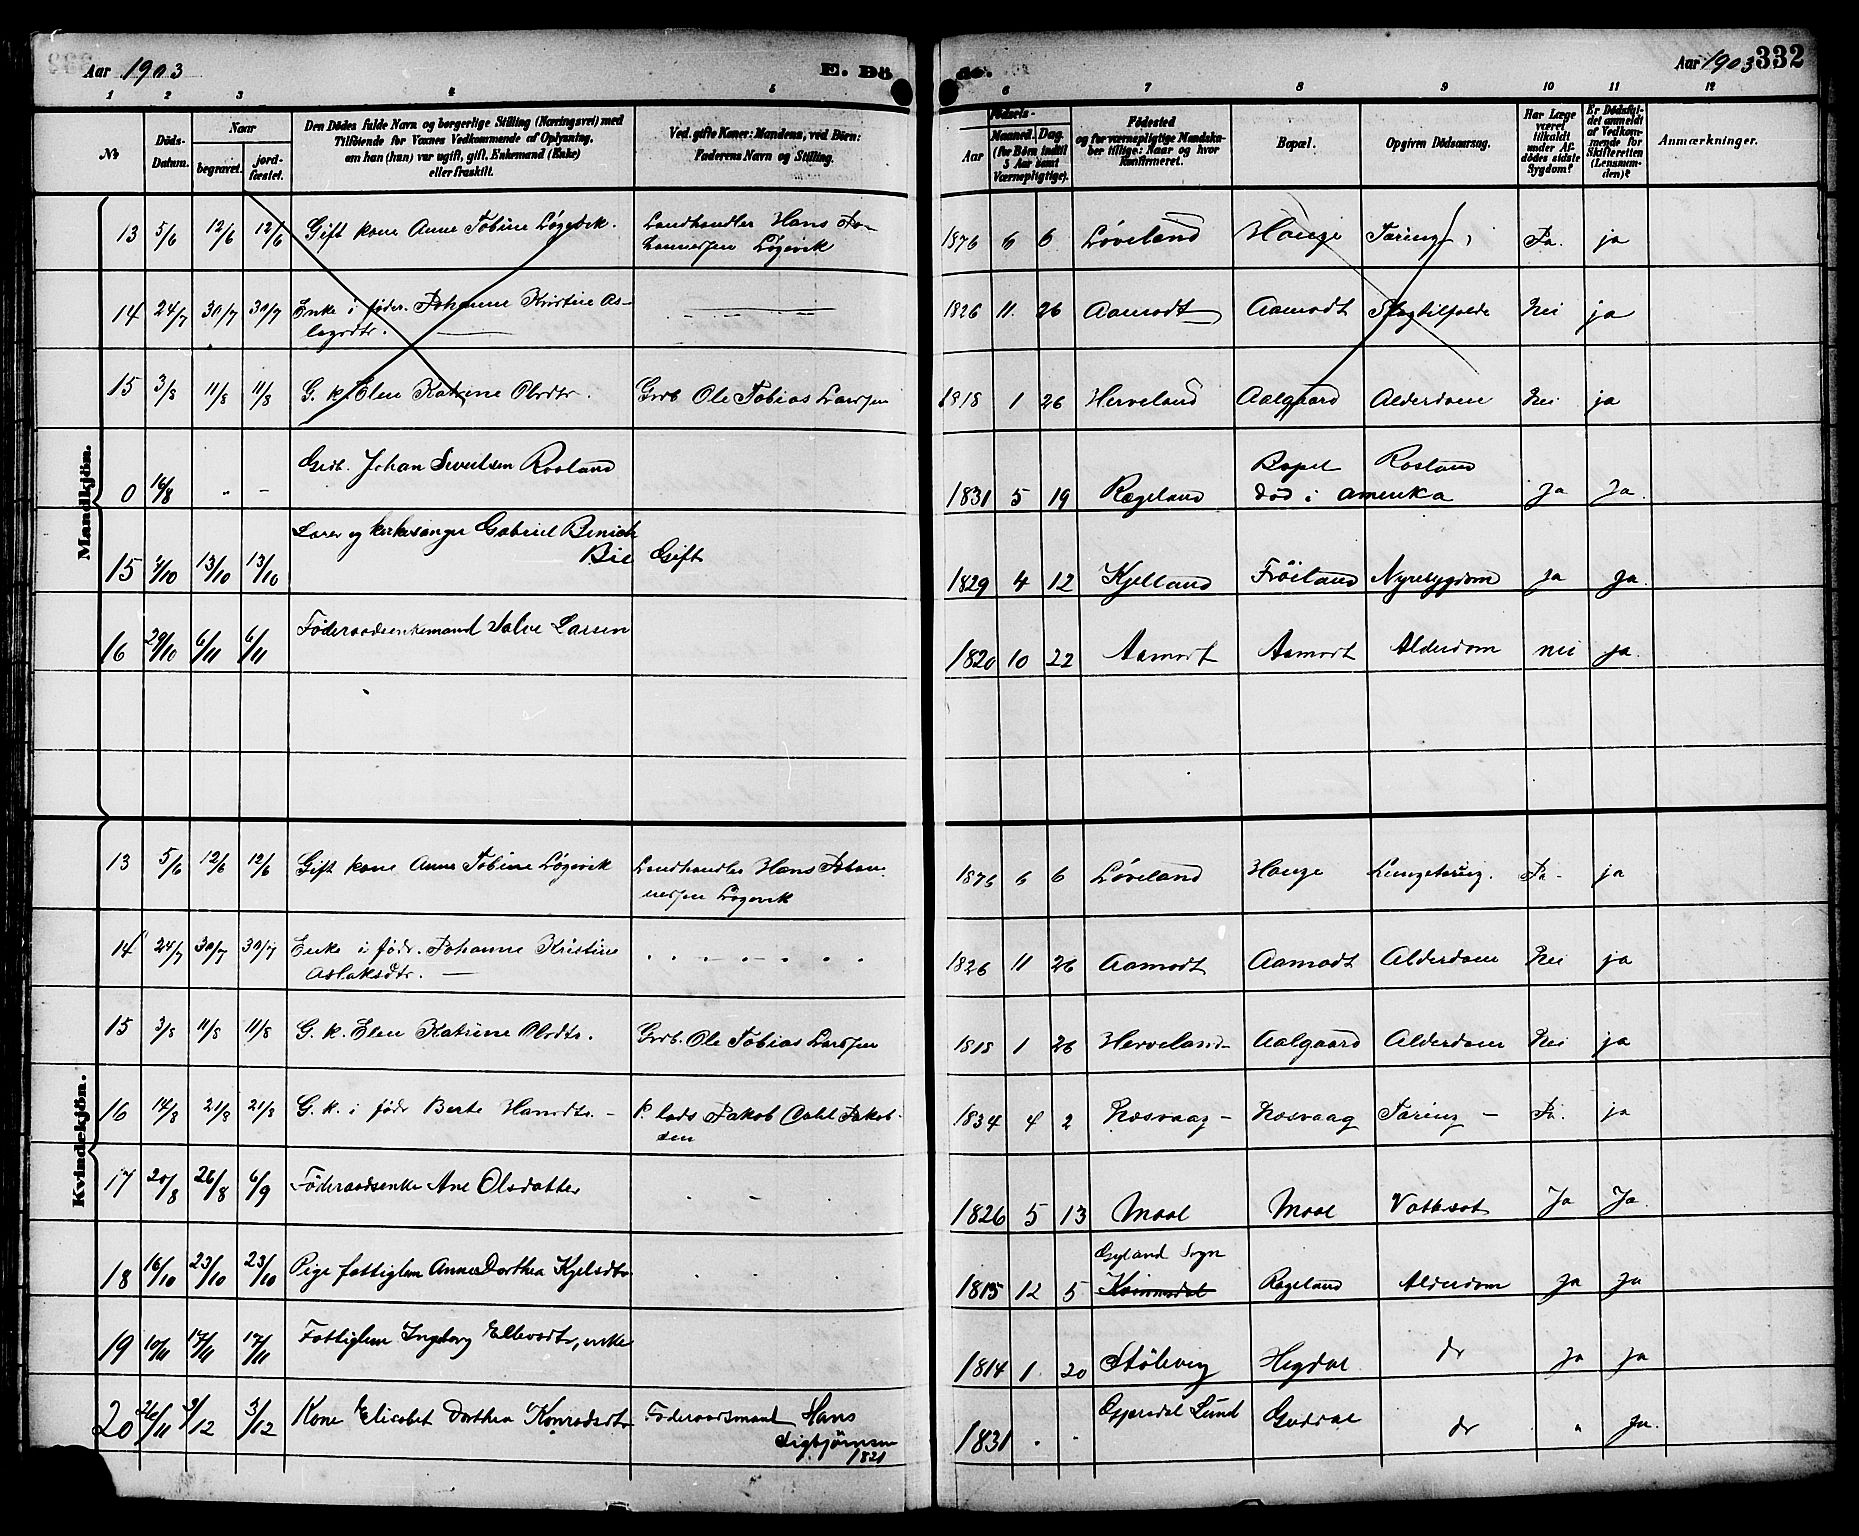 Aar 1903
E. Dö
de.
Aar 1903 332
1 2 3 4 5 6 7 8 9 10 11 12
No
Döds-Datum.
Naar
begravet.
jordfæstet.
Den Dödes fulde Navn og borgerlige Stilling (Næringsvei) med
Tilföiende for Voxnes Vedkommende af Oplysning,
om han (hun) var ugift, gift, Enkemand (Enke)
eller fraskilt.
Ved gifte Koner: Mandens, ved Börn:
Faderens Navn og Stilling.
Födsels-
Aar
Maaned. Dag.
(for Börn indtil
5 Aar samt
Værnepligtige).
Födested
og for værnepligtige Mandska-
ber tillige: Naar og hvor
konfirmeret.
Bopæl.
Opgiven Dödsaarsag.
Har Læge
været
tilkaldt
under Af-
dödes sidste
Sygdom?
Er Dödsfal-
det anmeldt
af Vedkom-
mende for
Skifteretten
(Lensman-
den)?
Anmærkninger.
Mandkjön.
13 5/6 12/6 12/6 Gift kone Anne Tobine Løgevik. Landhandler Hans Jo-
hannessen Løgevik 1876 6 6 Løveland Hauge Tæring Ja. ja
14 24/7 30/7 30/7 Enke i føder. Johanne Kristine As- 1826 11. 26 Aamodt Aamodt Slagtilfælde Nei ja
lagsdtr.
15 3/8 11/8 11/8 G. k. Elen Katrine Olsdtr. Grdb. Ole Tobias Larssen 1818 1 26 Herveland Aalgaard Alderdom Nei ja
0 16/8 " - Grdb. Johan Sivertsen Rosland 1831 5 19 Rægeland Bopel Rosland
död i Amerika Ja Ja.
15 4/10 13/10 13/10 Lærer og kirkesanger Gabriel
Bie Gift 1829 4 12 Kjelland Fröiland Nyresygdom Ja Ja.
16 29/10 6/11 6/11 Föderaadsenkemand Salve Larsen 1820 10 22 Aamort Aamort Alderdom nei ja.
Kvindekjön.
13 5/6 12/6 12/6 Gift kone Anne Tobine Løgevik Landhandler Hans Johan-
nessen Løgevik 1876 6 6 Løveland Hauge Lungetæring. Ja - ja
14 24/7 30/7 30/7 Enke i fødr. Johanne Kristine 1826 11 26 Aamodt Aamodt Alderdom Nei ja
Aslaksdtr.
15 3/8 11/8 11/8 G. k. Elen Katrine Olsdtr. Grdb. Ole Tobias Larssen 1818 1 26 Herveland Aalgaard Alderdom Nei ja
16 14/8 21/8 21/8 G. k. i fødr Berte Hansdtr. - P. lods Jakob Jakob-
sen 1834 4 2 Rosvaag - Rosvaag Tæring - Ja. ja
17 20/8 26/8 6/9 Föderaadsenke Ane Olsdatter 1826 5 13 Moal Moal Vattersot Ja Ja.
18 16/10 23/10 23/10 Pige fattiglem Anne Dorthea Kjelsdtr 1815 12 5 Gyland Sogn
Kvinnesdal Rægeland Alderdom Ja Ja
19 10/11 17/11 17/11 Fattiglem Ingeborg Ellevsdtr, enke 1814 1. 20 Stölevig Hegdal do Ja ja
20 26/11 3/12 3/12 Kone Elisabet Dorthea Konradsdtr Föderaadsmand Hans
Sigbjörnsen
1821 1831 . . Gjersdal Lund Guddal do " Ja.